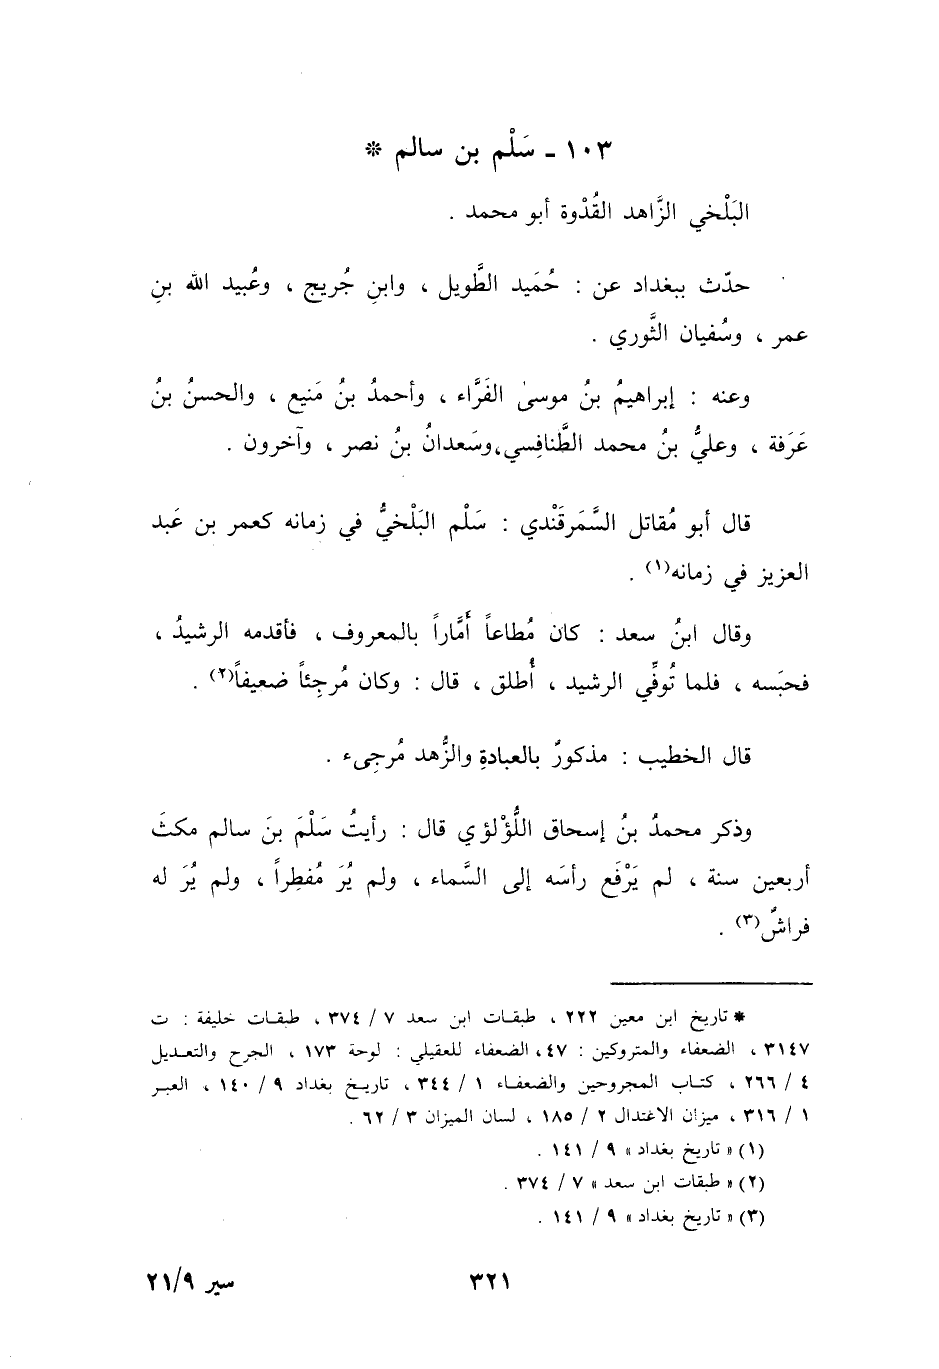 ١٠٣ ـ سَلْم بن سالم *
البَلْخي الزَّاهد القُدْوة أبو محمد .
حدّث ببغداد عن : حُمَيد الطَّويل ، وابنِ جُريج ، وعُبيد الله بنِ
عمر ، وسُفيان الثَّوري .
وعنه : إبراهيمُ بنُ موسىٰ الفَرَّاء ، وأحمدُ بنُ مَنيع ، والحسنُ بنُ
عَرَفة ، وعليُّ بنُ محمد الطَّنافِسي،وسَعدانُ بنُ نصر ، وآخرون .
قال أبو مُقاتل السَّمَرقَنْدي : سَلْم البَلْخيُّ في زمانه كعمر بن عَبد
العزيز في زمانه(١) .
وقال ابنُ سعد : كان مُطاعاً أَمَّاراً بالمعروف ، فأقدمه الرشيدُ ،
فحبَسه ، فلما تُوفِّي الرشيد ، أُطلق ، قال : وكان مُرجِئاً ضعيفاً(٢) .
قال الخطيب : مذكورٌ بالعبادةِ والزُّهد مُرجِىء .
وذكر محمدُ بنُ إسحاق اللُّؤلؤي قال : رأيتُ سَلْمَ بنَ سالم مكثَ
أربعين سنة ، لم يَرْفَع رأسَه إلى السَّماء ، ولم يُرَ مُفطِراً ، ولم يُرَ له
فراشٌ(٣) .
* تاريخ ابن معين ٢٢٢ ، طبقات ابن سعد ٧ / ٣٧٤ ، طبقات خليفة : ت
٣١٤٧ ، الضعفاء والمتروكين : ٤٧ ، الضعفاء للعقيلي : لوحة ١٧٣ ، الجرح والتعديل
٤ / ٢٦٦ ، كتاب المجروحين والضعفاء ١ / ٣٤٤ ، تاريخ بغداد ٩ / ١٤٠ ، العبر
١ / ٣١٦ ، ميزان الاعتدال ٢ / ١٨٥ ، لسان الميزان ٣ / ٦٢ .
(١) « تاريخ بغداد » ٩ / ١٤١ .
(٢) « طبقات ابن سعد » ٧ / ٣٧٤ .
(٣) « تاريخ بغداد » ٩ / ١٤١ .
٣٢١
سير ٢١/٩